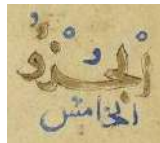 الجُزْءُ
الخامس